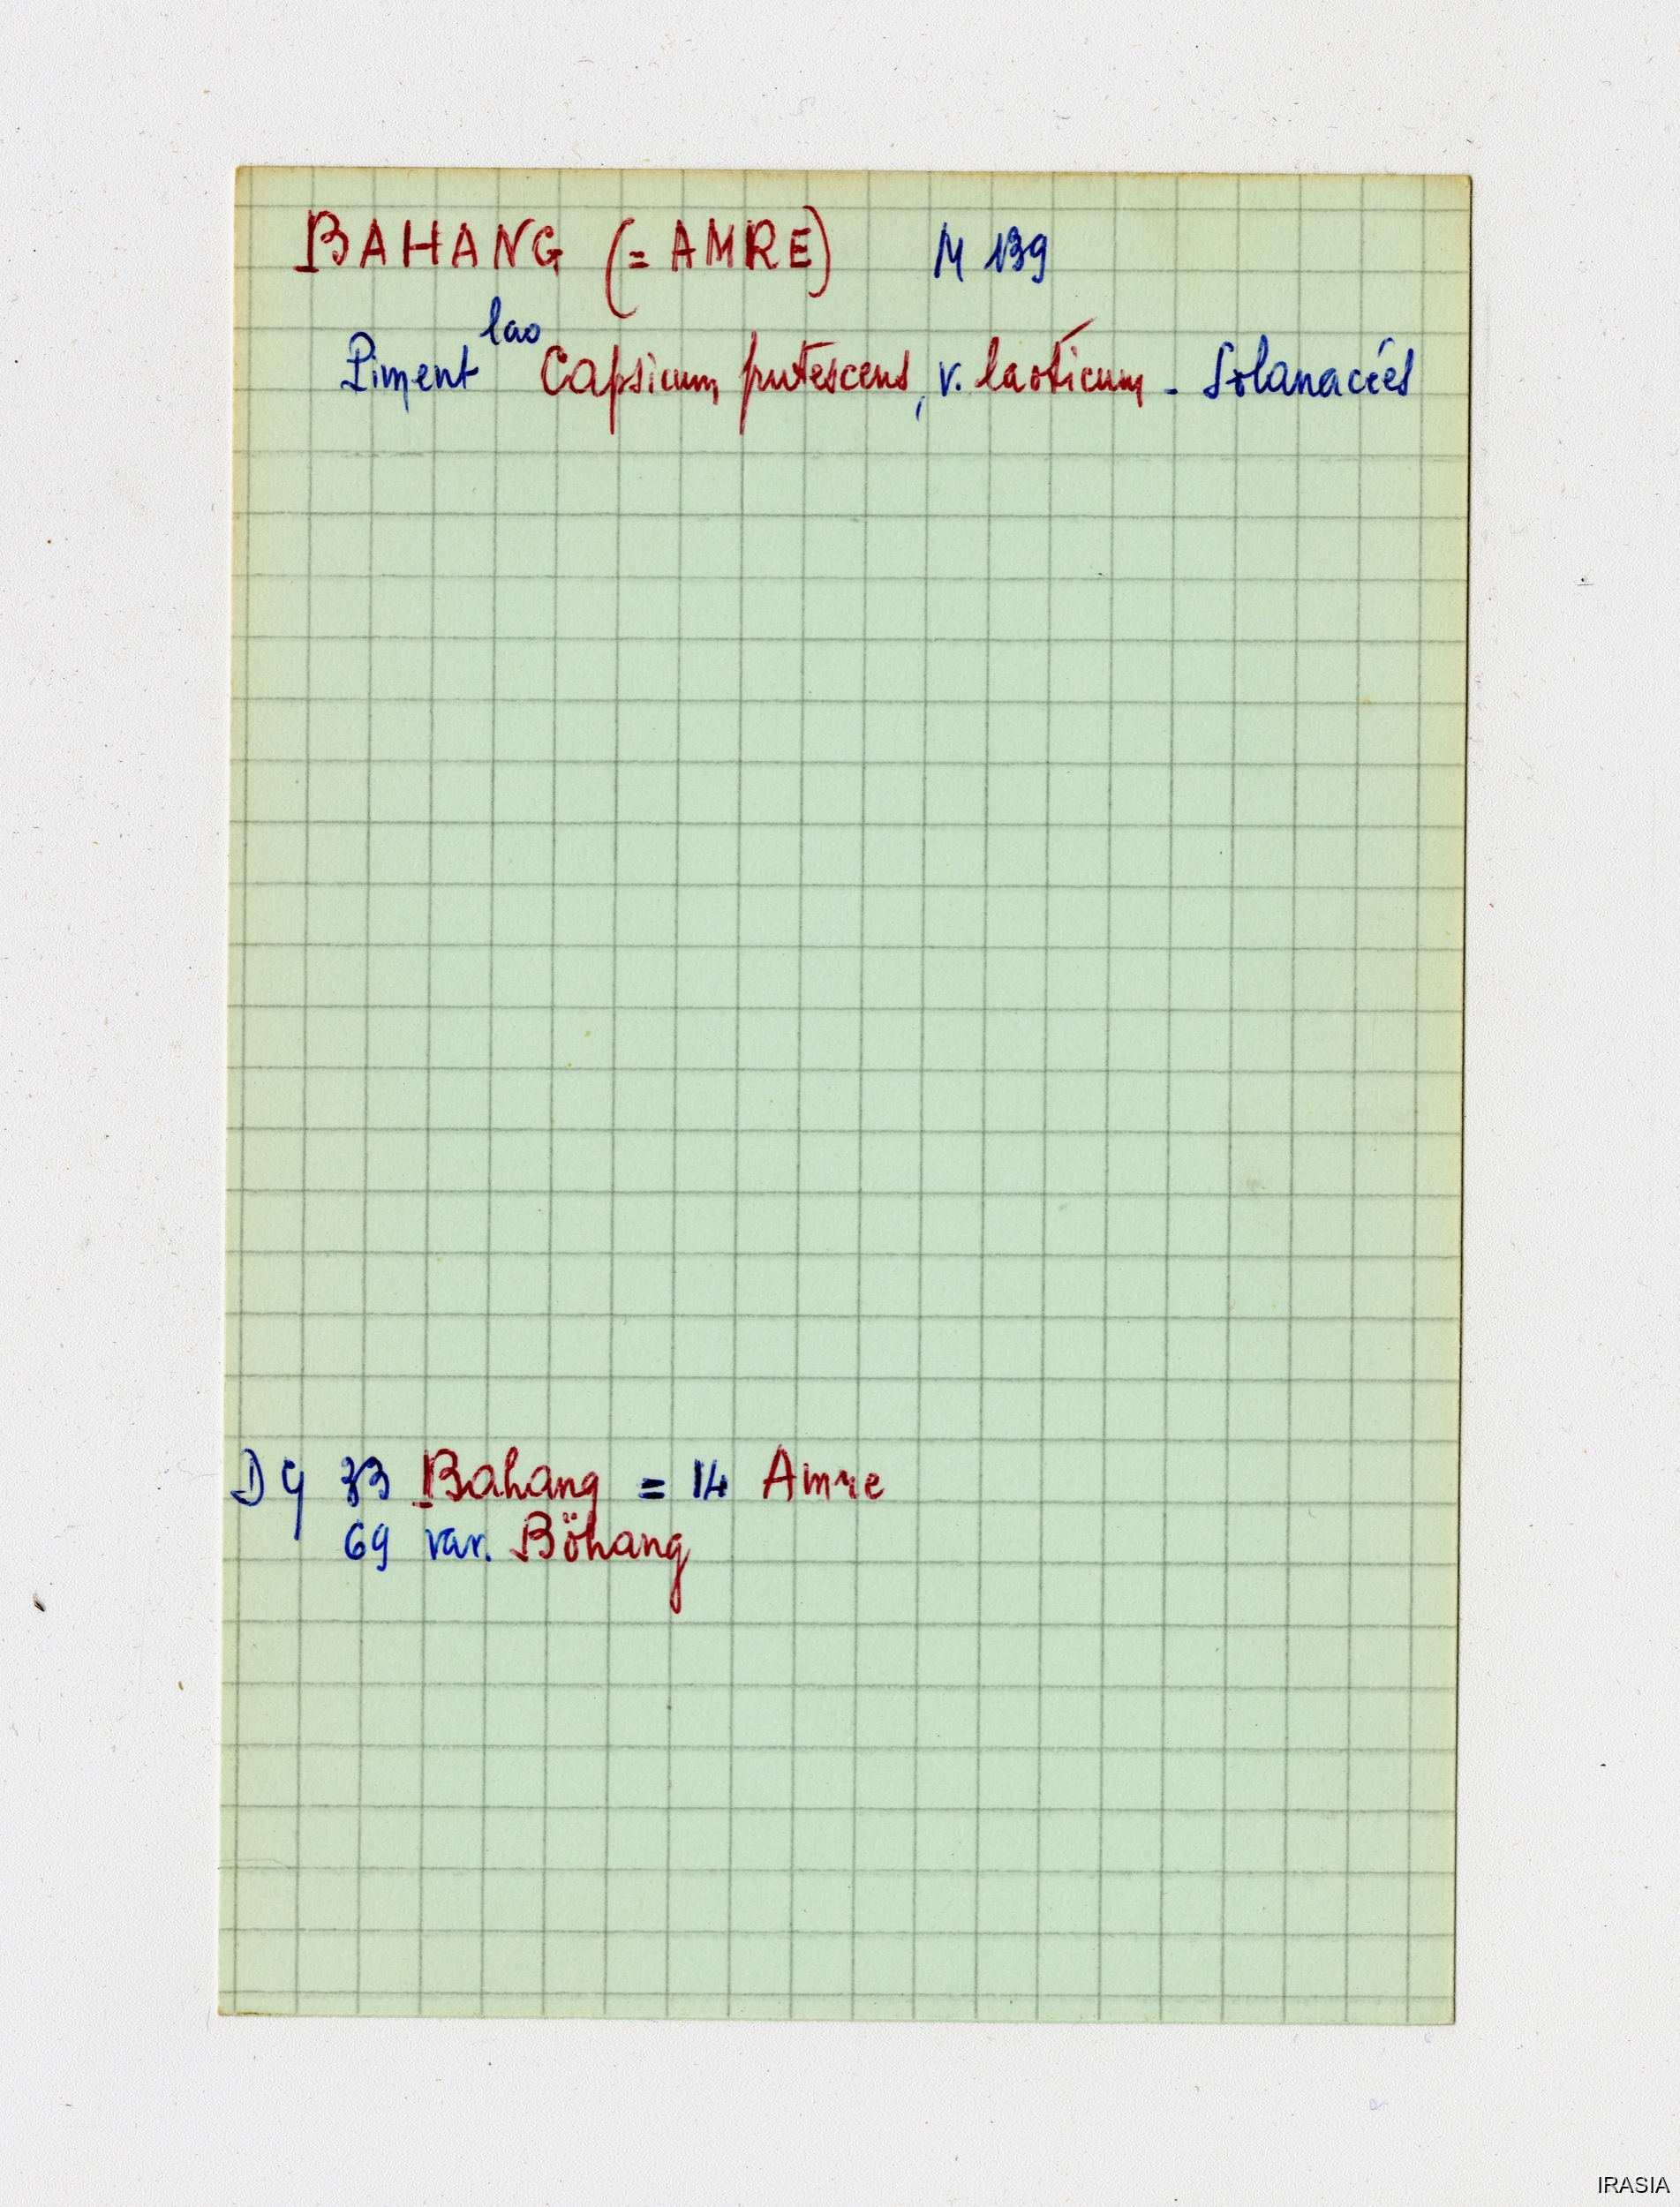 BAHANG (= AMRE) M 139
Piment lao Capsicum frutescens, v. laoticum - Solanacées
D 9 33 Bahang = 14 Amre
69 var. Böhang
IRASIA